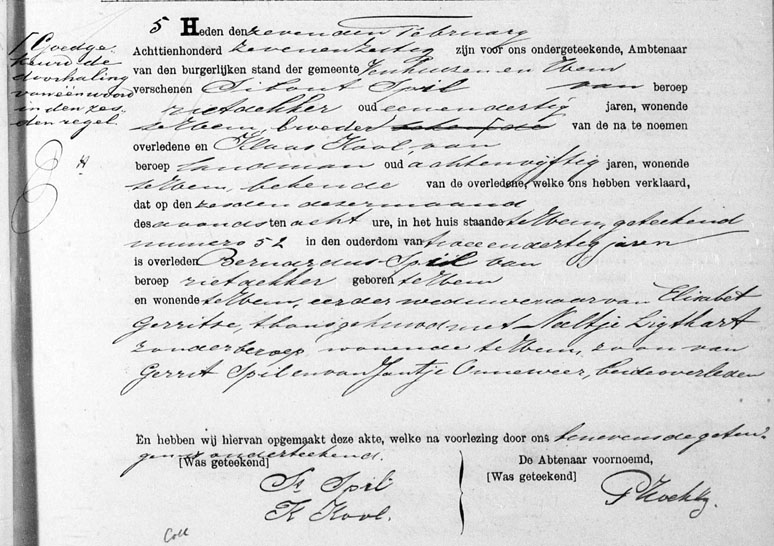 5 Heden den zevenden February
Achttienhonderd zevenenzestig zijn voor ons ondergeteekende, Ambtenaar
van den burgerlijken stand der gemeente Venhuizen en Hem
verschenen Sibout Spil van beroep
rietdekker oud eenendertig jaren, wonende
te Hem, broeder bekende van de na te noemen
overledene en Klaas Kool, van
beroep landman oud achtenvijftig jaren, wonende
te Hem, bekende van de overledene, welke ons hebben verklaard,
dat op den zesden dezer maand
des avonds ten acht ure, in het huis staande te Hem, geteekend
numero 52 in den ouderdom van tweeendertig jaren
is overleden Bernardus Spil van
beroep rietdekker geboren te Hem
en wonende te Hem, eerder weduwenaar van Elisabet
Gerritse, thans gehuwd met Naltje Ligthart
zonder beroep wonende te Hem, zoon van
Gerrit Spil en van Jantje Onneweer, beide overleden
En hebben wij hiervan opgemaakt deze akte, welke na voorlezing door ons benevens de getui-
gen is onderteekend.
[Was geteekend]
S. Spil
K Kool.
De Abtenaar voornoemd,
[Was geteekend]
[Goedge
keurd de
doorhaling
van één woord
in den zes
den regel
H
Coll